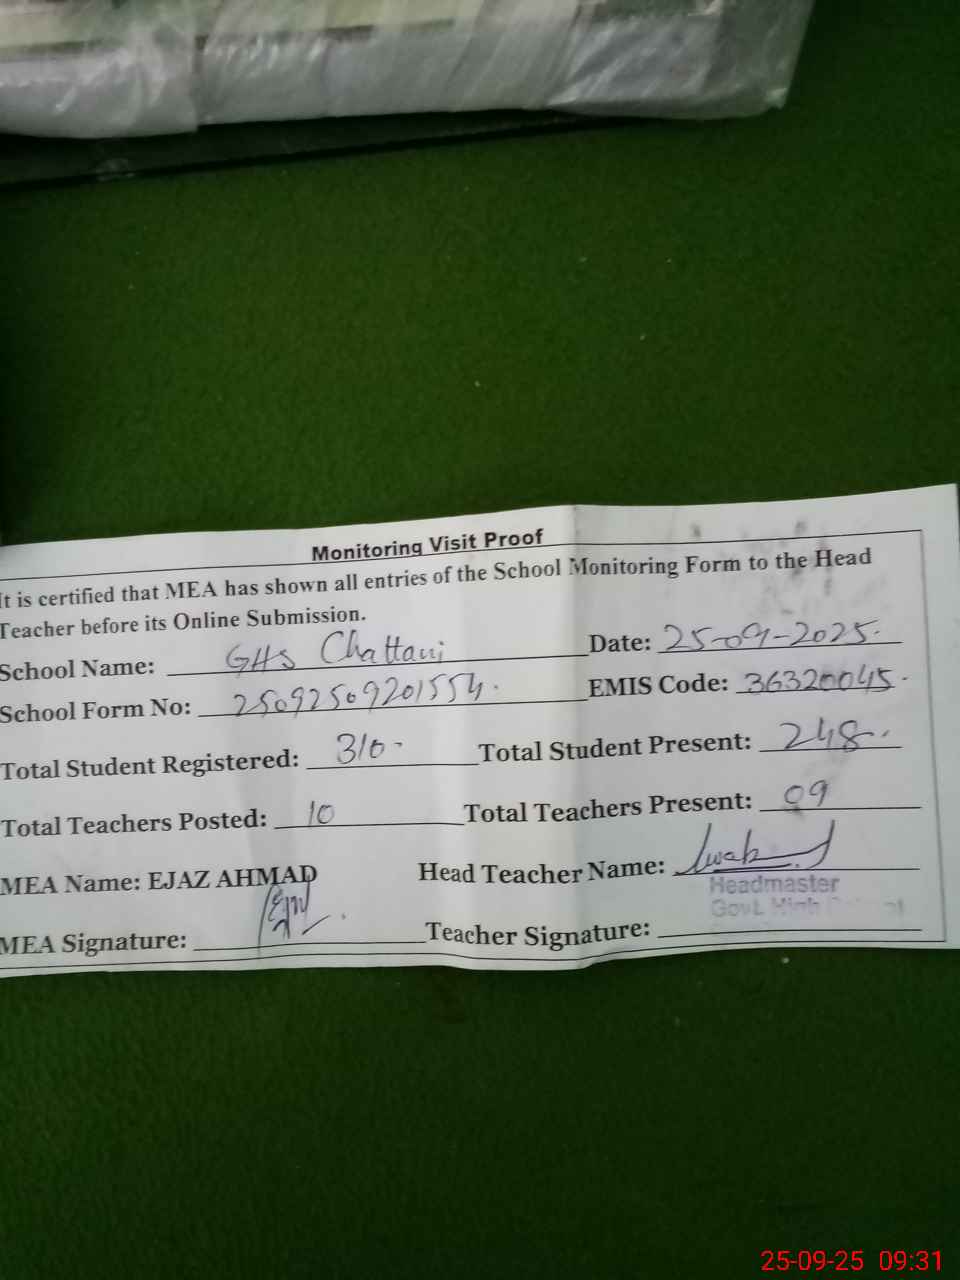 Monitoring Visit Proof
It is certified that MEA has shown all entries of the School Monitoring Form to the Head
Teacher before its Online Submission.
School Name: GHS Chattani Date: 25-09-2025.
School Form No: 25092509201554. EMIS Code: 36320045.
Total Student Registered: 310- Total Student Present: 248.
Total Teachers Posted: 10 Total Teachers Present: 09
MEA Name: EJAZ AHMAD Head Teacher Name:
Headmaster
Govt. High
MEA Signature: Teacher Signature:
25-09-25 09:31